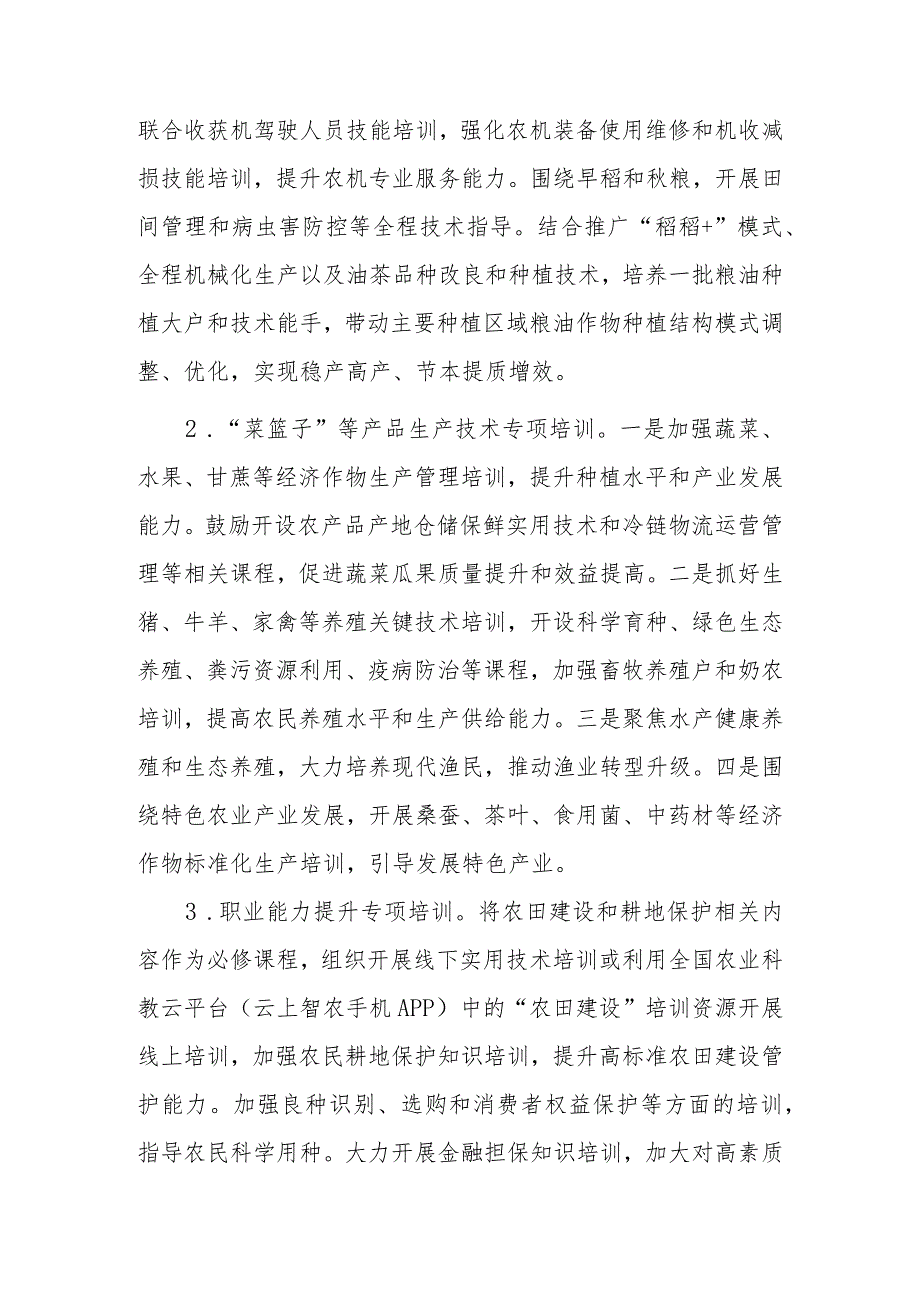 联合收获机驾驶人员技能培训，强化农机装备使用维修和机收减
损技能培训，提升农机专业服务能力。围绕早稻和秋粮，开展田
间管理和病虫害防控等全程技术指导。结合推广“稻稻+”模式、
全程机械化生产以及油茶品种改良和种植技术，培养一批粮油种
植大户和技术能手，带动主要种植区域粮油作物种植结构模式调
整、优化，实现稳产高产、节本提质增效。
2．“菜篮子”等产品生产技术专项培训。一是加强蔬菜、
水果、甘蔗等经济作物生产管理培训，提升种植水平和产业发展
能力。鼓励开设农产品产地仓储保鲜实用技术和冷链物流运营管
理等相关课程，促进蔬菜瓜果质量提升和效益提高。二是抓好生
猪、牛羊、家禽等养殖关键技术培训，开设科学育种、绿色生态
养殖、粪污资源利用、疫病防治等课程，加强畜牧养殖户和奶农
培训，提高农民养殖水平和生产供给能力。三是聚焦水产健康养
殖和生态养殖，大力培养现代渔民，推动渔业转型升级。四是围
绕特色农业产业发展，开展桑蚕、茶叶、食用菌、中药材等经济
作物标准化生产培训，引导发展特色产业。
3．职业能力提升专项培训。将农田建设和耕地保护相关内
容作为必修课程，组织开展线下实用技术培训或利用全国农业科
教云平台（云上智农手机 APP）中的“农田建设”培训资源开展
线上培训，加强农民耕地保护知识培训，提升高标准农田建设管
护能力。加强良种识别、选购和消费者权益保护等方面的培训，
指导农民科学用种。大力开展金融担保知识培训，加大对高素质